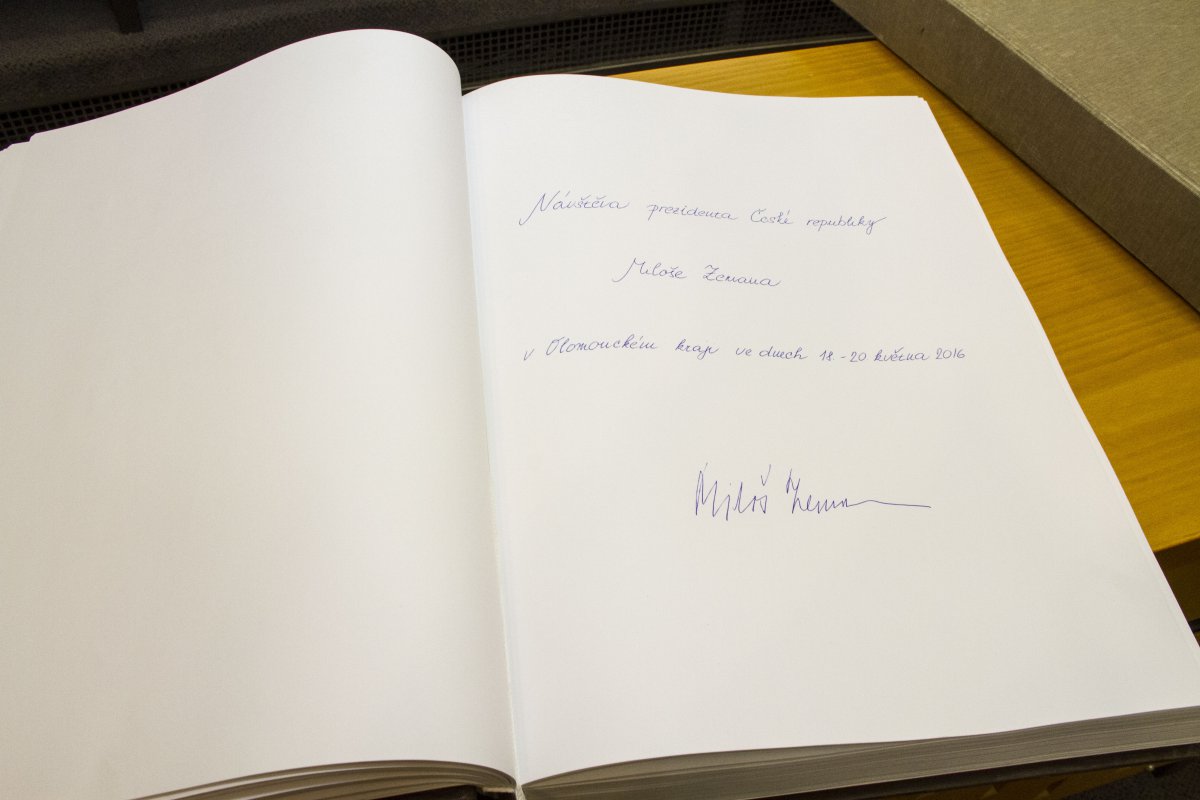 Návštěva prezidenta České republiky
Miloše Zemana
v Olomouckém kraji ve dnech 18.-20 května 2016
Miloš Zeman